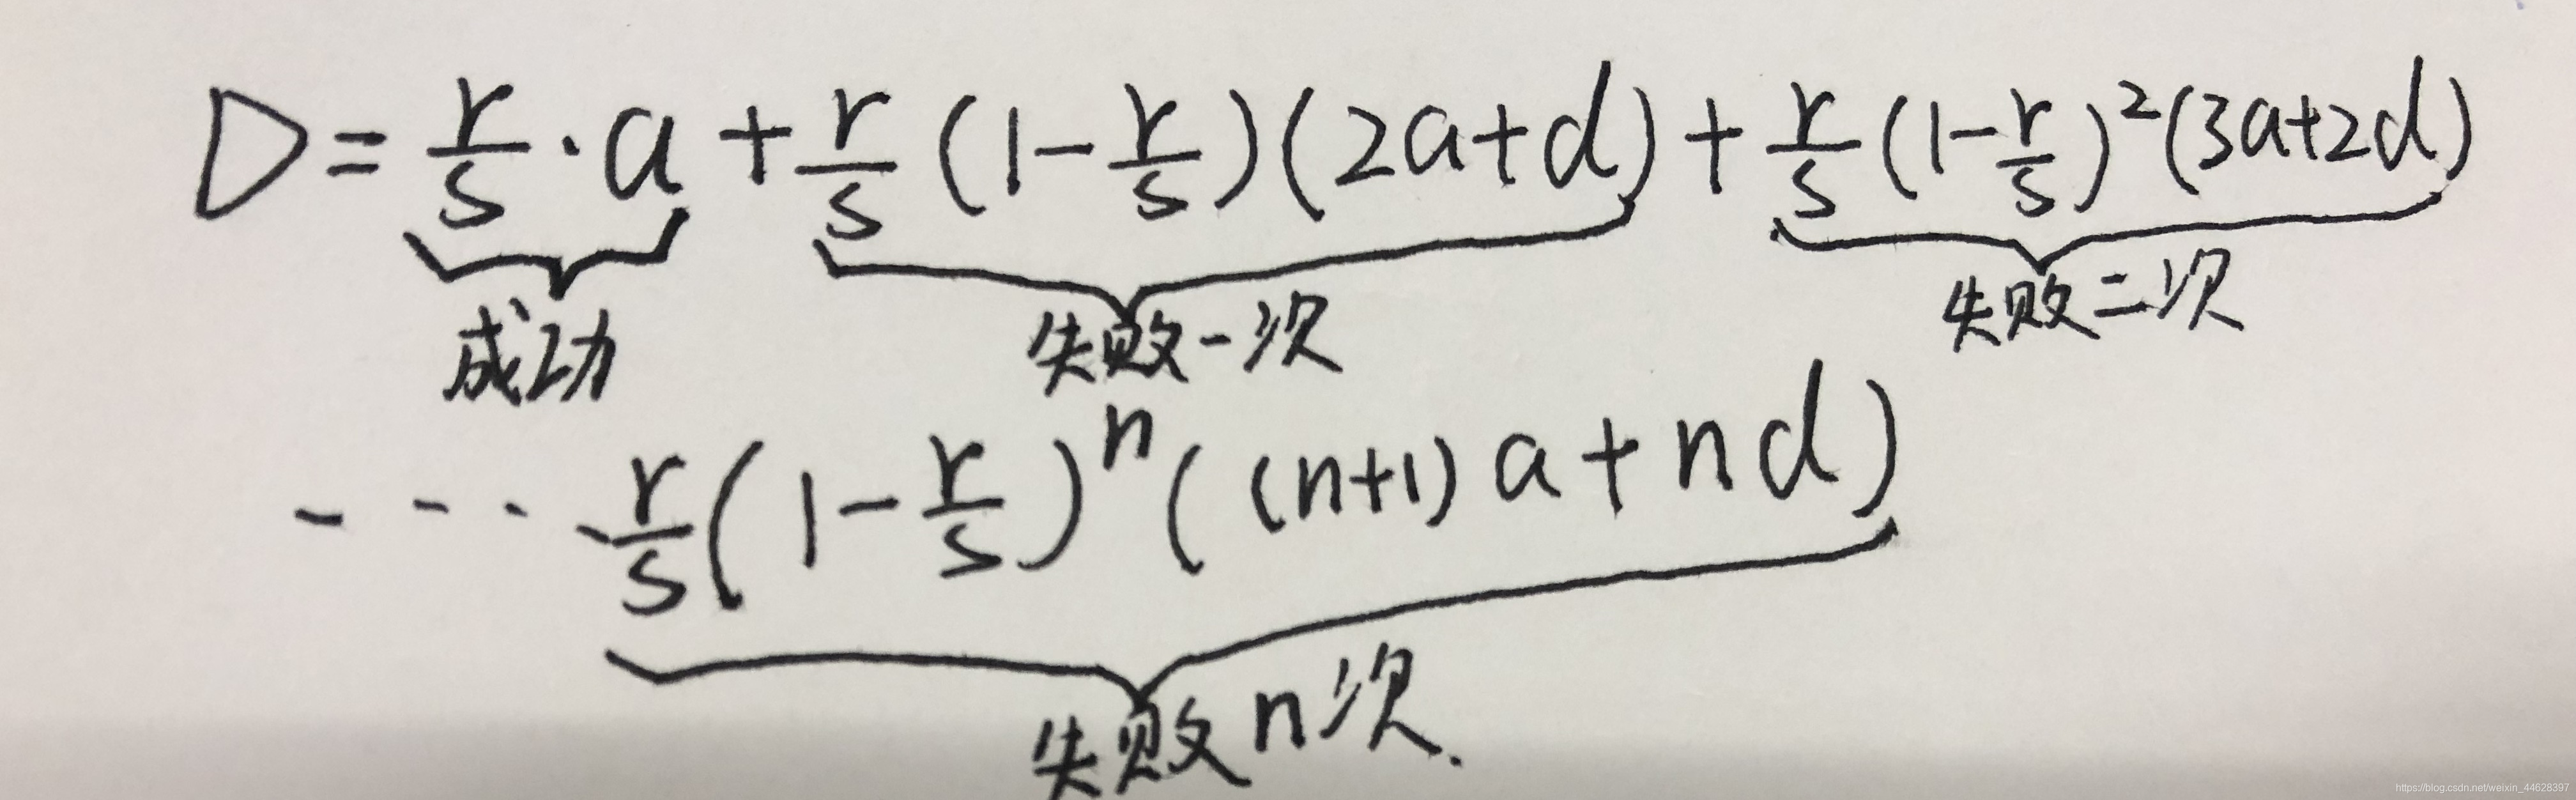 D = r/s · a + r/s (1 - r/s)(2a+d) + r/s (1 - r/s)² (3a+2d)
成功 失败一次 失败二次
---- r/s (1 - r/s)ⁿ ((n+1)a + nd)
失败n次.
https://blog.csdn.net/weixin_44628397